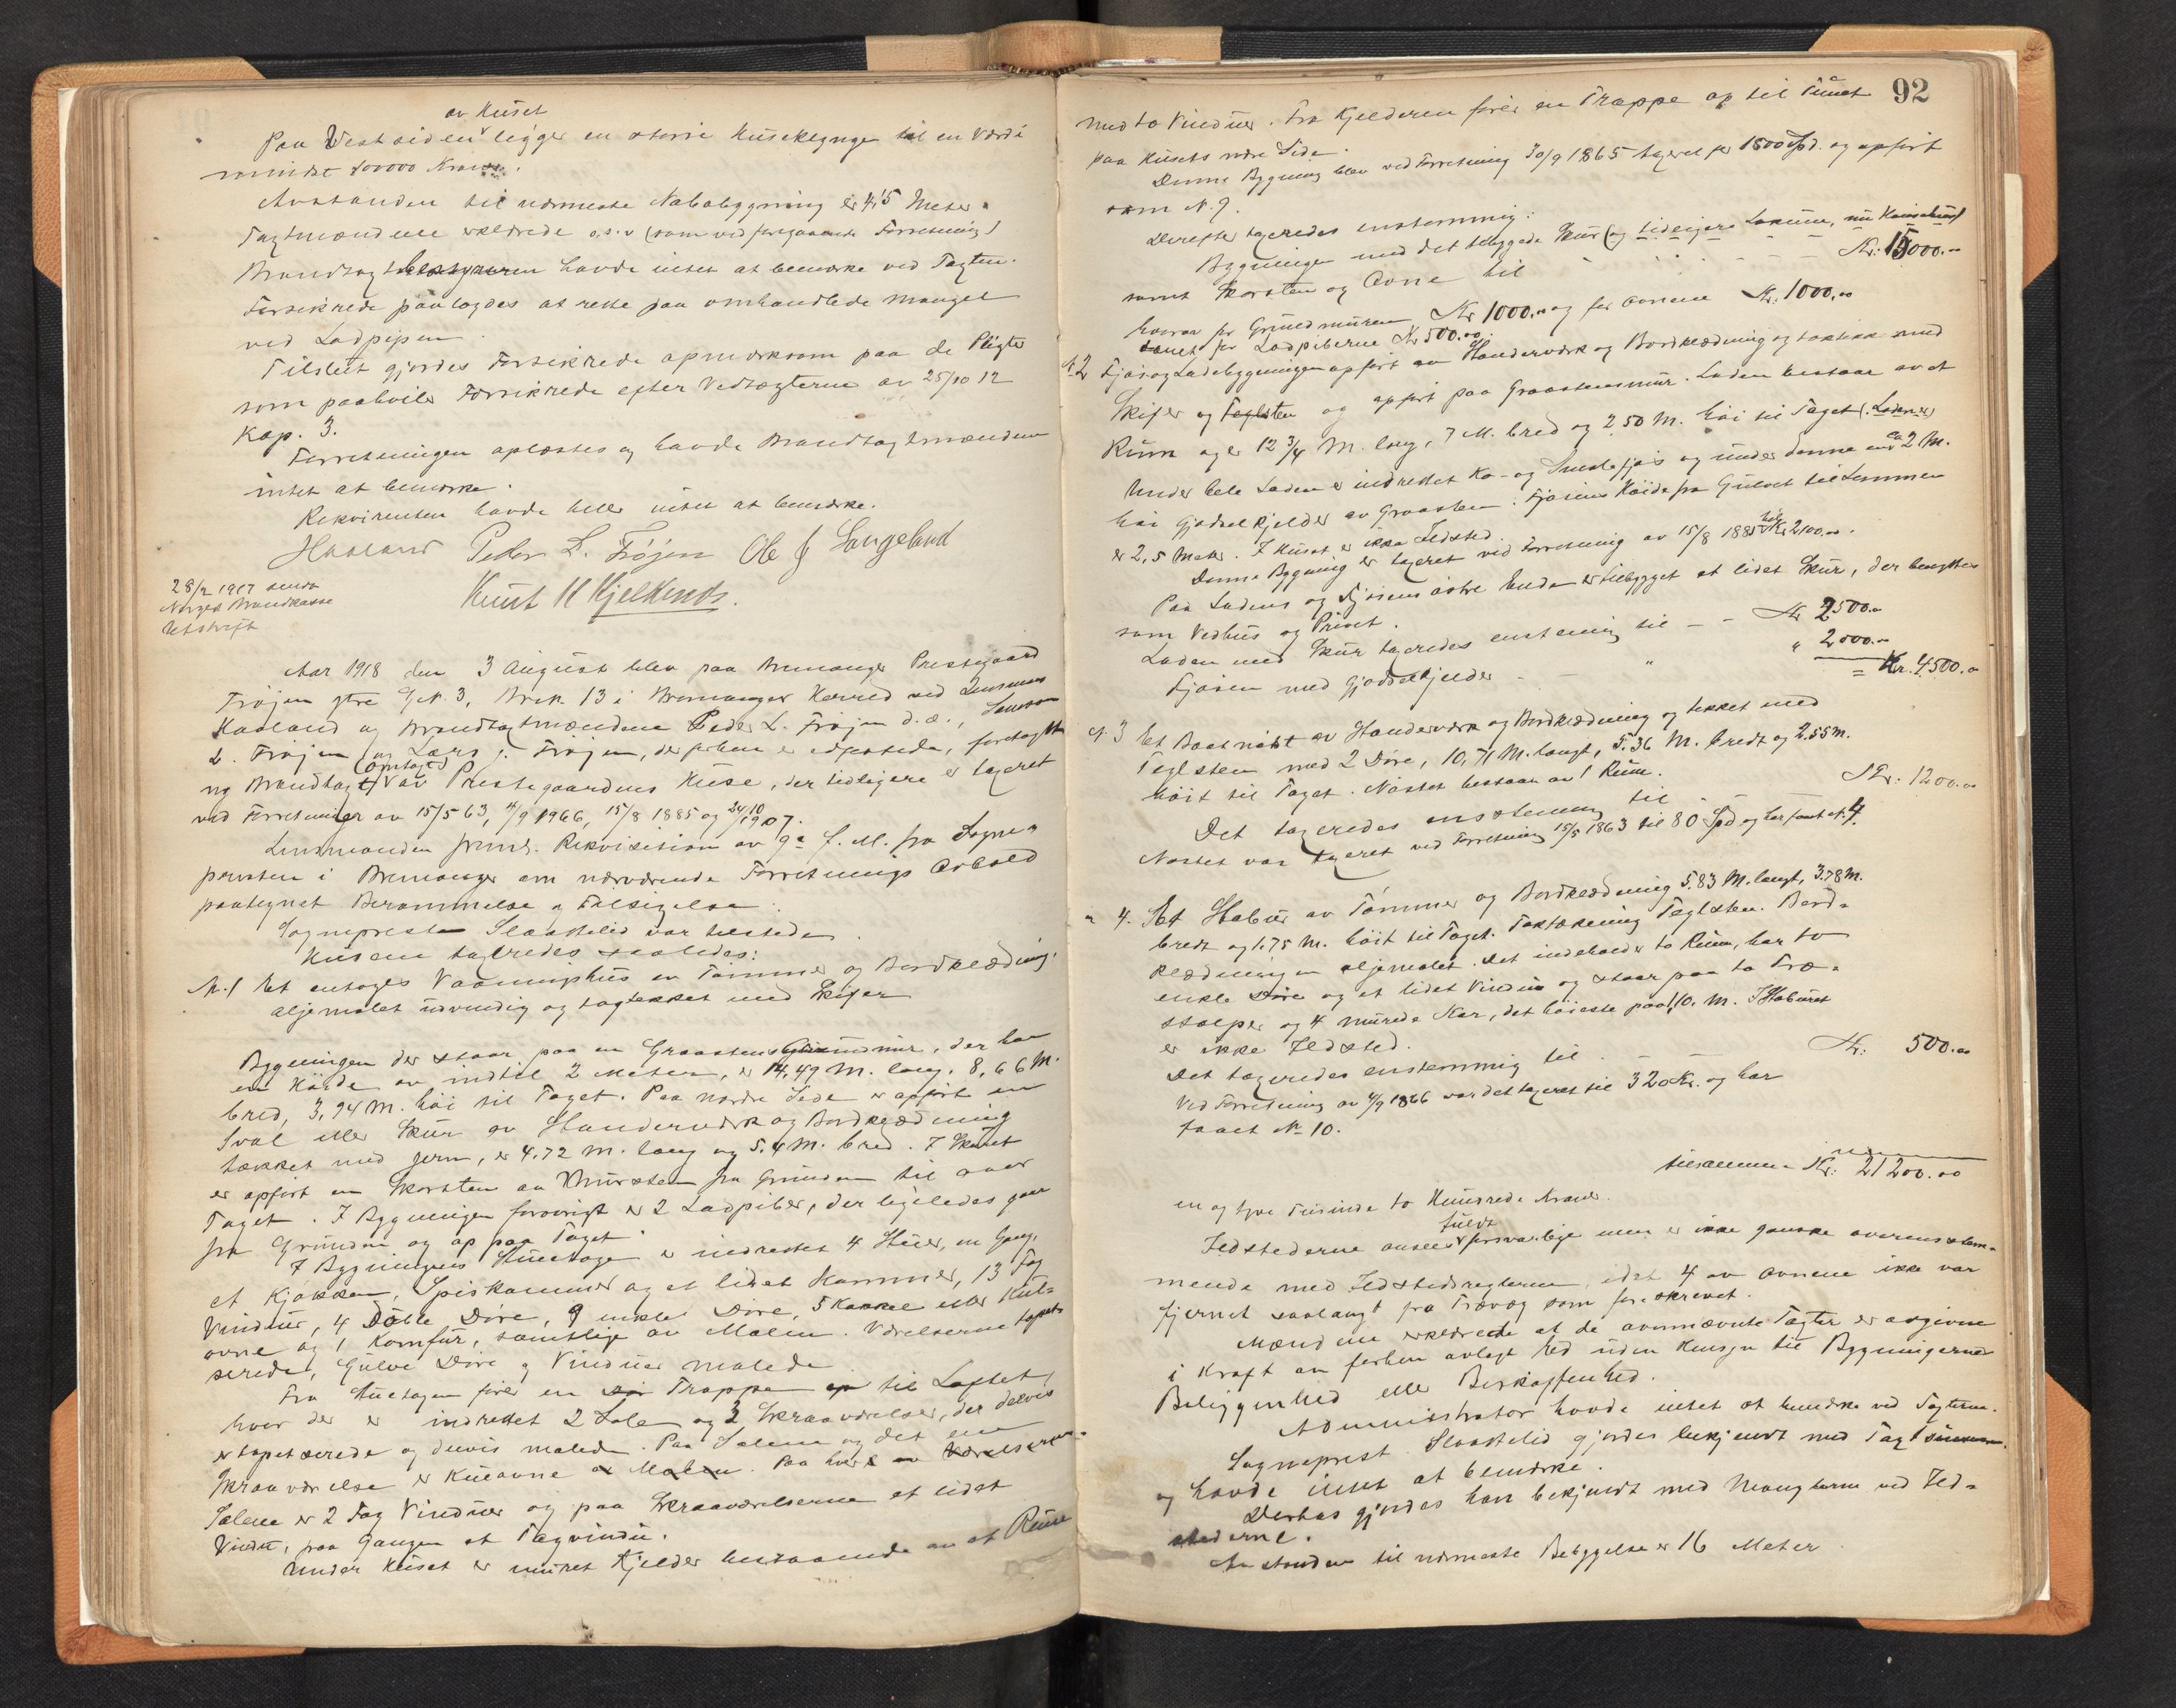 av Huset
Paa Vestsiden ligger en større Huseklynge til en Værdi
mindst 100000 Kroner.
Avstanden til nærmeste Nabobygning er 4,5 Meter.
Taxtmændene erklærede o.s.v (som ved foregaaende Forretning)
Brandtaxtbestyreren havde intet at bemærke ved Taxten.
Forsikrede paalagdes at rette paa omhandlede Mangel
ved Ladpipen.
Tilslut gjordes Forsikrede opmærksom paa de Pligter
som paahviler Forsikrede efter Vedtægterne av 25/10 12
Kap. 3.
Forretningen oplæstes og havde Brandtaxtmændene
intet at bemærke.
Rekvirenten havde heller intet at bemærke.
Haaland Peder L. Frøjen Ole J Langeland
Knut K Hjelkends.
28/2 1917 sendt
Norges Brandkasse
Utskrift
Aar 1918 den 3 August blev paa Bremanger Prestegaard
Frøjen ytre G.No. 3, Br.n. 13 i Bremanger Herred ved Lensmand
Haaland og Brandtaxtmændene Peder L. Frøjen d.æ.,
L. Frøjen og Lars J. Frøjen, der forhen er edfæstede, foretaget
ny Brandtaxt (Omtaxt) av Prestegaardens Huse, der tidligere er taxeret
ved Forretninger av 15/5 63, 4/9 1966, 15/8 1885 og 24/10 1907.
Lensmanden freml. Rekvisition av 9de f. M. fra Sogne-
presten i Bremanger om nærværende Forretnings Avhold
paategnet Berammelse og Tilsigelse.
Sognepresten Slaattelid var tilstede.
Husene taxeredes saaledes:
N. 1 Et etages Vaaningshus av Tømmer og Bordklædning,
oljemalet utvendig og tagtækket med Skifer
Bygningen der staar paa en Graastens Grundmur, der har
en Høide av indtil 2 Meter, er 14,49 M. lang, 8,66 M.
bred, 3,94 M. høi til Taget. Paa nordre Side er opført en
Sval eller Skur av Standerværk og Bordklædning
tækket med jern, er 4.72 M. lang og 5.4 M. bred. I Skuret
er opført en Skorsten av Mursten fra Grunden til over
Taget. I Bygningen forøvrigt er 2 Ladpiber, der ligeledes gaar
fra Grunden og op paa Taget.
I Bygningens Stueetage er indrettet 4 Stuer, en Gang,
et Kjøkken, Spiskammer og et lidet Kammer, 13 Fag
Vinduer, 4 Doble Døre, 9 enkle Døre, 5 Kakkel eller Kul-
ovne og 1 Komfur, samtlige av Malm. Værelserne tapet-
serede, Gulve Døre og Vinduer malede
Fra Stuetagen fører en Dør Trappe op til Loftet,
hvor der er indrettet 2 Sale og 3 Skraaværelser, der delvis
er tapetserede og delvis malede. Paa Salene og det ene
Skraaværelse er Kulovne av Malm. Paa hver av Værelserne
Salene er 2 Fag Vinduer og paa Skraaværelserne et lidet
Vindu, paa Gangen et Tagvindu.
Under Huset er muret Kjelder bestaaende av et Rum
92
med to Vinduer. Fra Kjelderen fører en Trappe op til Tunet
paa Husets nordre Side.
Denne Bygning blev ved Forretning 30/9 1865 taxeret for 1800 Spd. og opført
som N. 9.
Derefter taxeredes enstemmig:
Bygningen med det tilbyggede Skur (og tidligere Lokum, nu Hønsehus)
samt Skorsten og Ovne til Kr: 15000.-
hvorav for Grundmuren Kr 1000.- og for Ovnene Kr: 1000.00
samt for Ladpiberne Kr 500.00.
N. 2 Fjøs og Ladebygningen opført av Standerværk og Bordklædning og taktækt med
Skifer og Teglsten og opført paa Graastensmur. Laden bestaar av et
Rum og er 12 3/4 M. lang, 7 M. bred og 2.50 M. høi til Taget (Laden er)
Under hele Laden er indrettet Ko- og Smalefjøs og under denne en ca 2 M.
høi Gjødselkjelder av Graasten. Fjøsens Høide fra Gulvet til Lemmen
er 2,5 Meter. I Huset er ikke Ildsted.
Denne Bygning er taxeret ved Forretning av 15/8 1885 til Kr 2100.00.
Paa Ladens og Fjøsens østre Ende er tilbygget et lidet Skur, der benyttes
som Vedhus og Privet.
Laden med Skur taxeredes enstemmig til - - Kr 2500.-
Fjøsen med Gjødselkjelder - - " " 2000.-
= Kr. 4500.-
N. 3 Et Baatnøst av Standerværk og Bordklædning og tækket med
Teglsten med 2 Døre, 10,71 M. langt, 5.36 M. bredt og 2.55 M.
høit til Taget. Nøstet bestaar av 1 Rum.
Det taxeredes enstemmig til Kr: 1200.00
Nøstet var taxeret ved Forretning 15/5 1863 til 80 Spd og har faaet N. 4.
" 4. Et Stabur av Tømmer og Bordklædning 5.83 M. langt, 3.78 M.
bredt og 1.75 M. høit til Taget. Taktækning Teglsten. Bord-
klædningen oljemalet. Det indeholder to Rum, har to
enkle Døre og et lidet Vindu og staar paa to Træ-
stolper og 4 murede Kar, det høieste paa 1,10. M. I Staburet
er ikke Ildsted.
Det taxeredes enstemmig til Kr: 500.00
Ved Forretning av 4/9 1866 var det taxeret til 320 Kr. og har
faaet No 10.
tilsammen Kr: 21200.00
en og tyve Tusinde to Hundrede Kroner.
Ildstederne ansees fuldt forsvarlige men er ikke ganske overensstem-
mende med Ildstedsreglerne, idet 4 av Ovnene ikke var
fjernet saalangt fra Trævæg som foreskrevet.
Mændene erklærede at de ovennævnte Taxter er avgivne
i Kraft av forhen avlagt Ed uden Hensyn til Bygningernes
Beliggenhed eller Beskaffenhed.
Administrator havde intet at bemærke ved Taxterne.
Sogneprest Slaattelid gjordes bekjendt med Taxtsummen
og havde intet at bemærke.
Derhos gjordes han bekjendt med Manglerne ved Ild-
stederne.
Avstanden til nærmeste Bebyggelse er 16 Meter